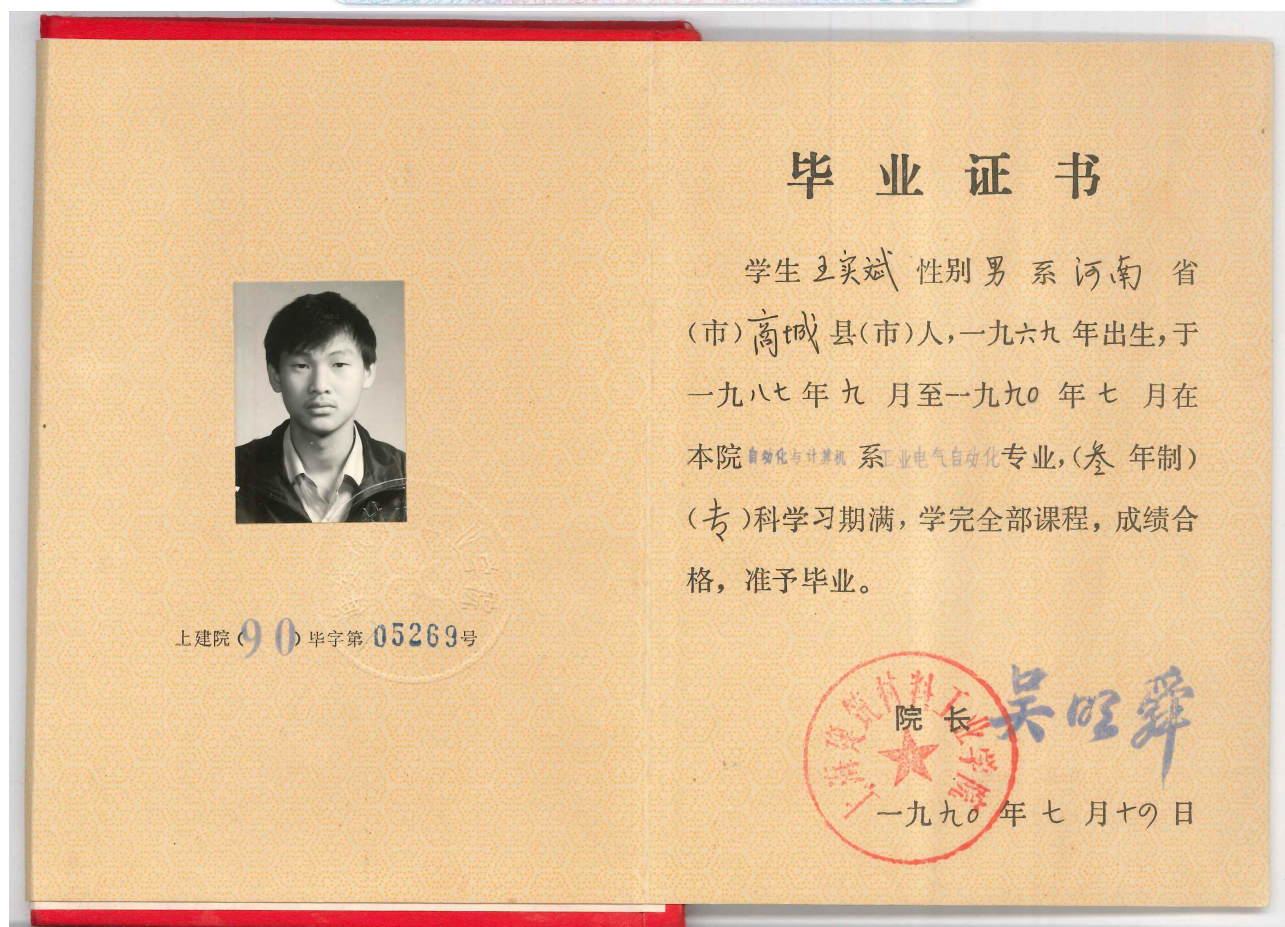 上建院(90)毕字第05269号
毕业证书
学生王实斌 性别男 系河南 省
(市)商城县(市)人,一九六九年出生,于
一九八七年九 月至一九九〇年七 月在
本院自动化与计算机系工业电气自动化专业,(叁 年制)
(专)科学习期满,学完全部课程,成绩合
格,准予毕业。
上海建筑材料工业学院
院长 吴明舜
一九九〇年七 月十四日